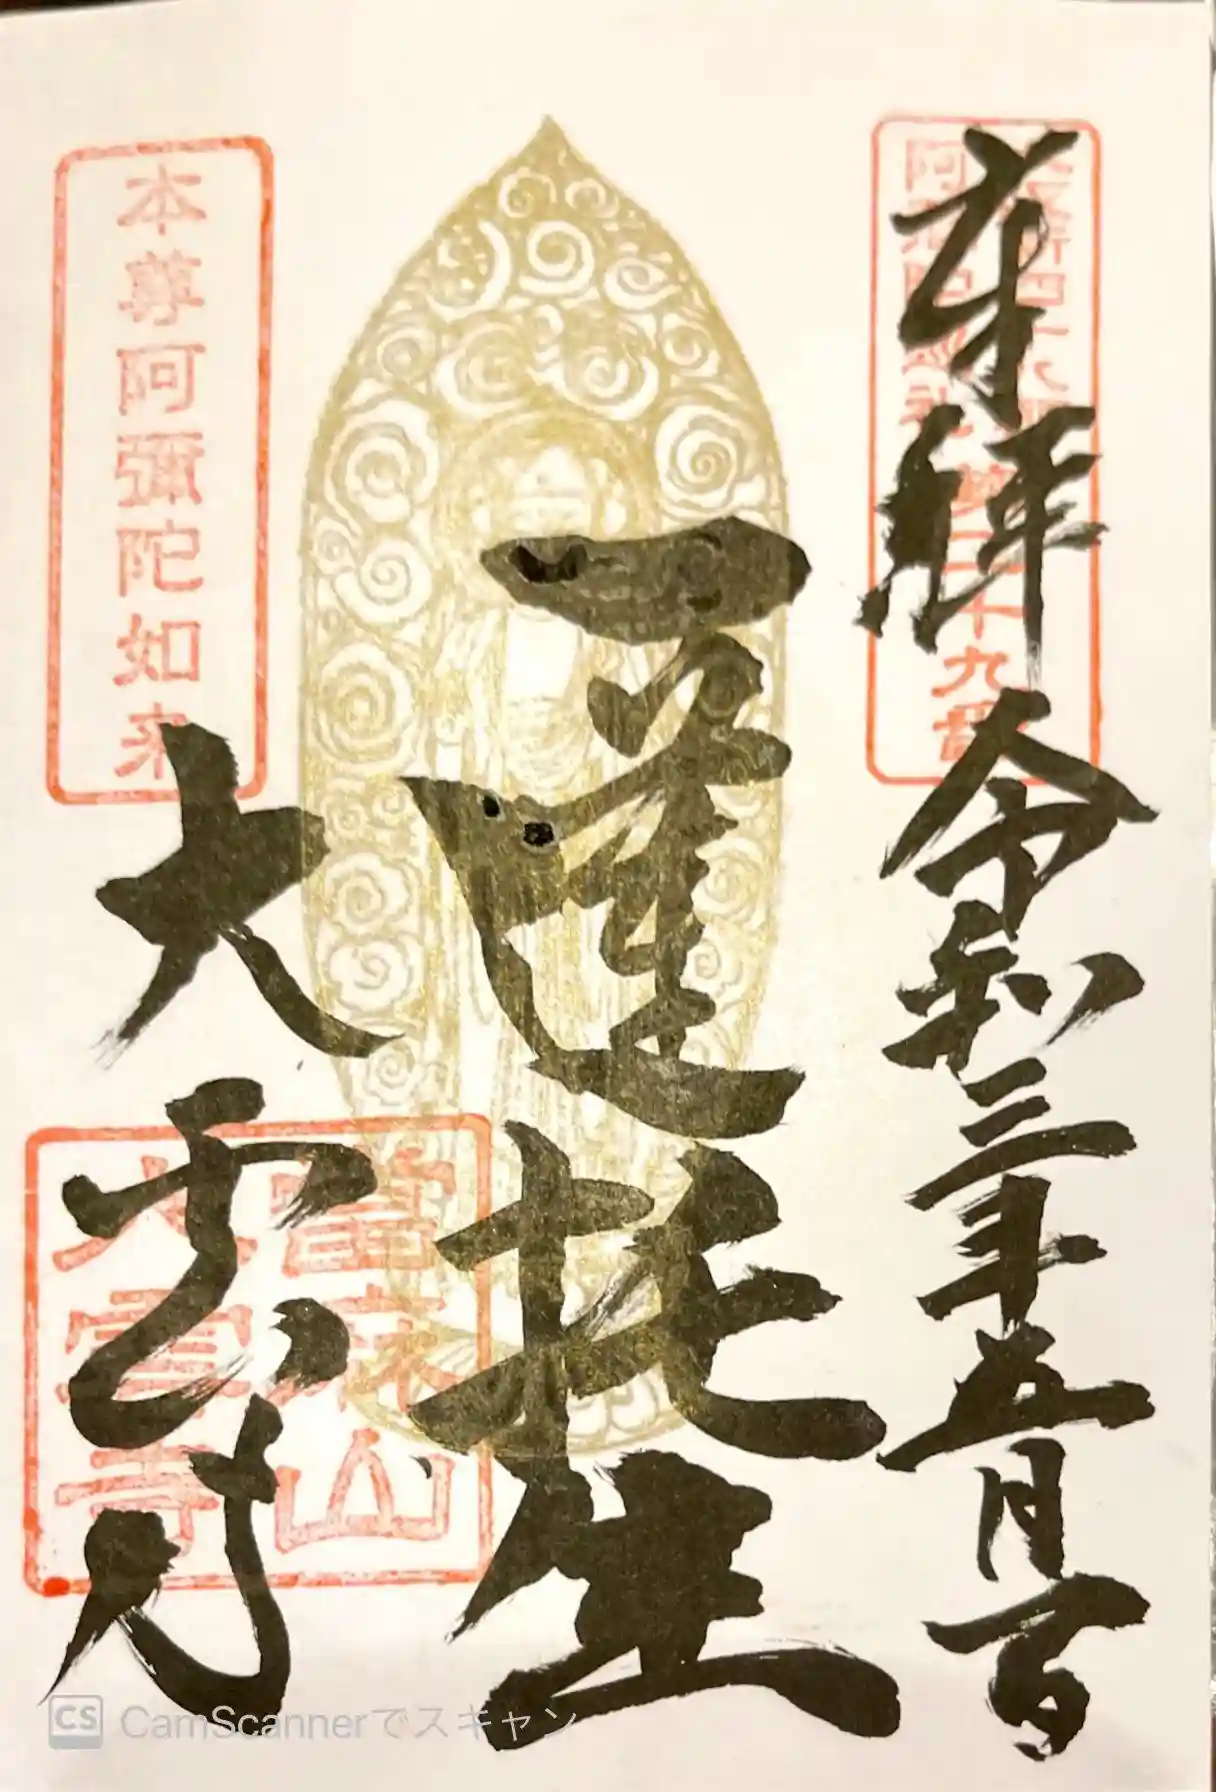 奉拝
令和三年五月一日
第二十九番
一蓮托生
本尊阿彌陀如来
大雲寺
當麻山
大雲寺
CS CamScannerでスキャン